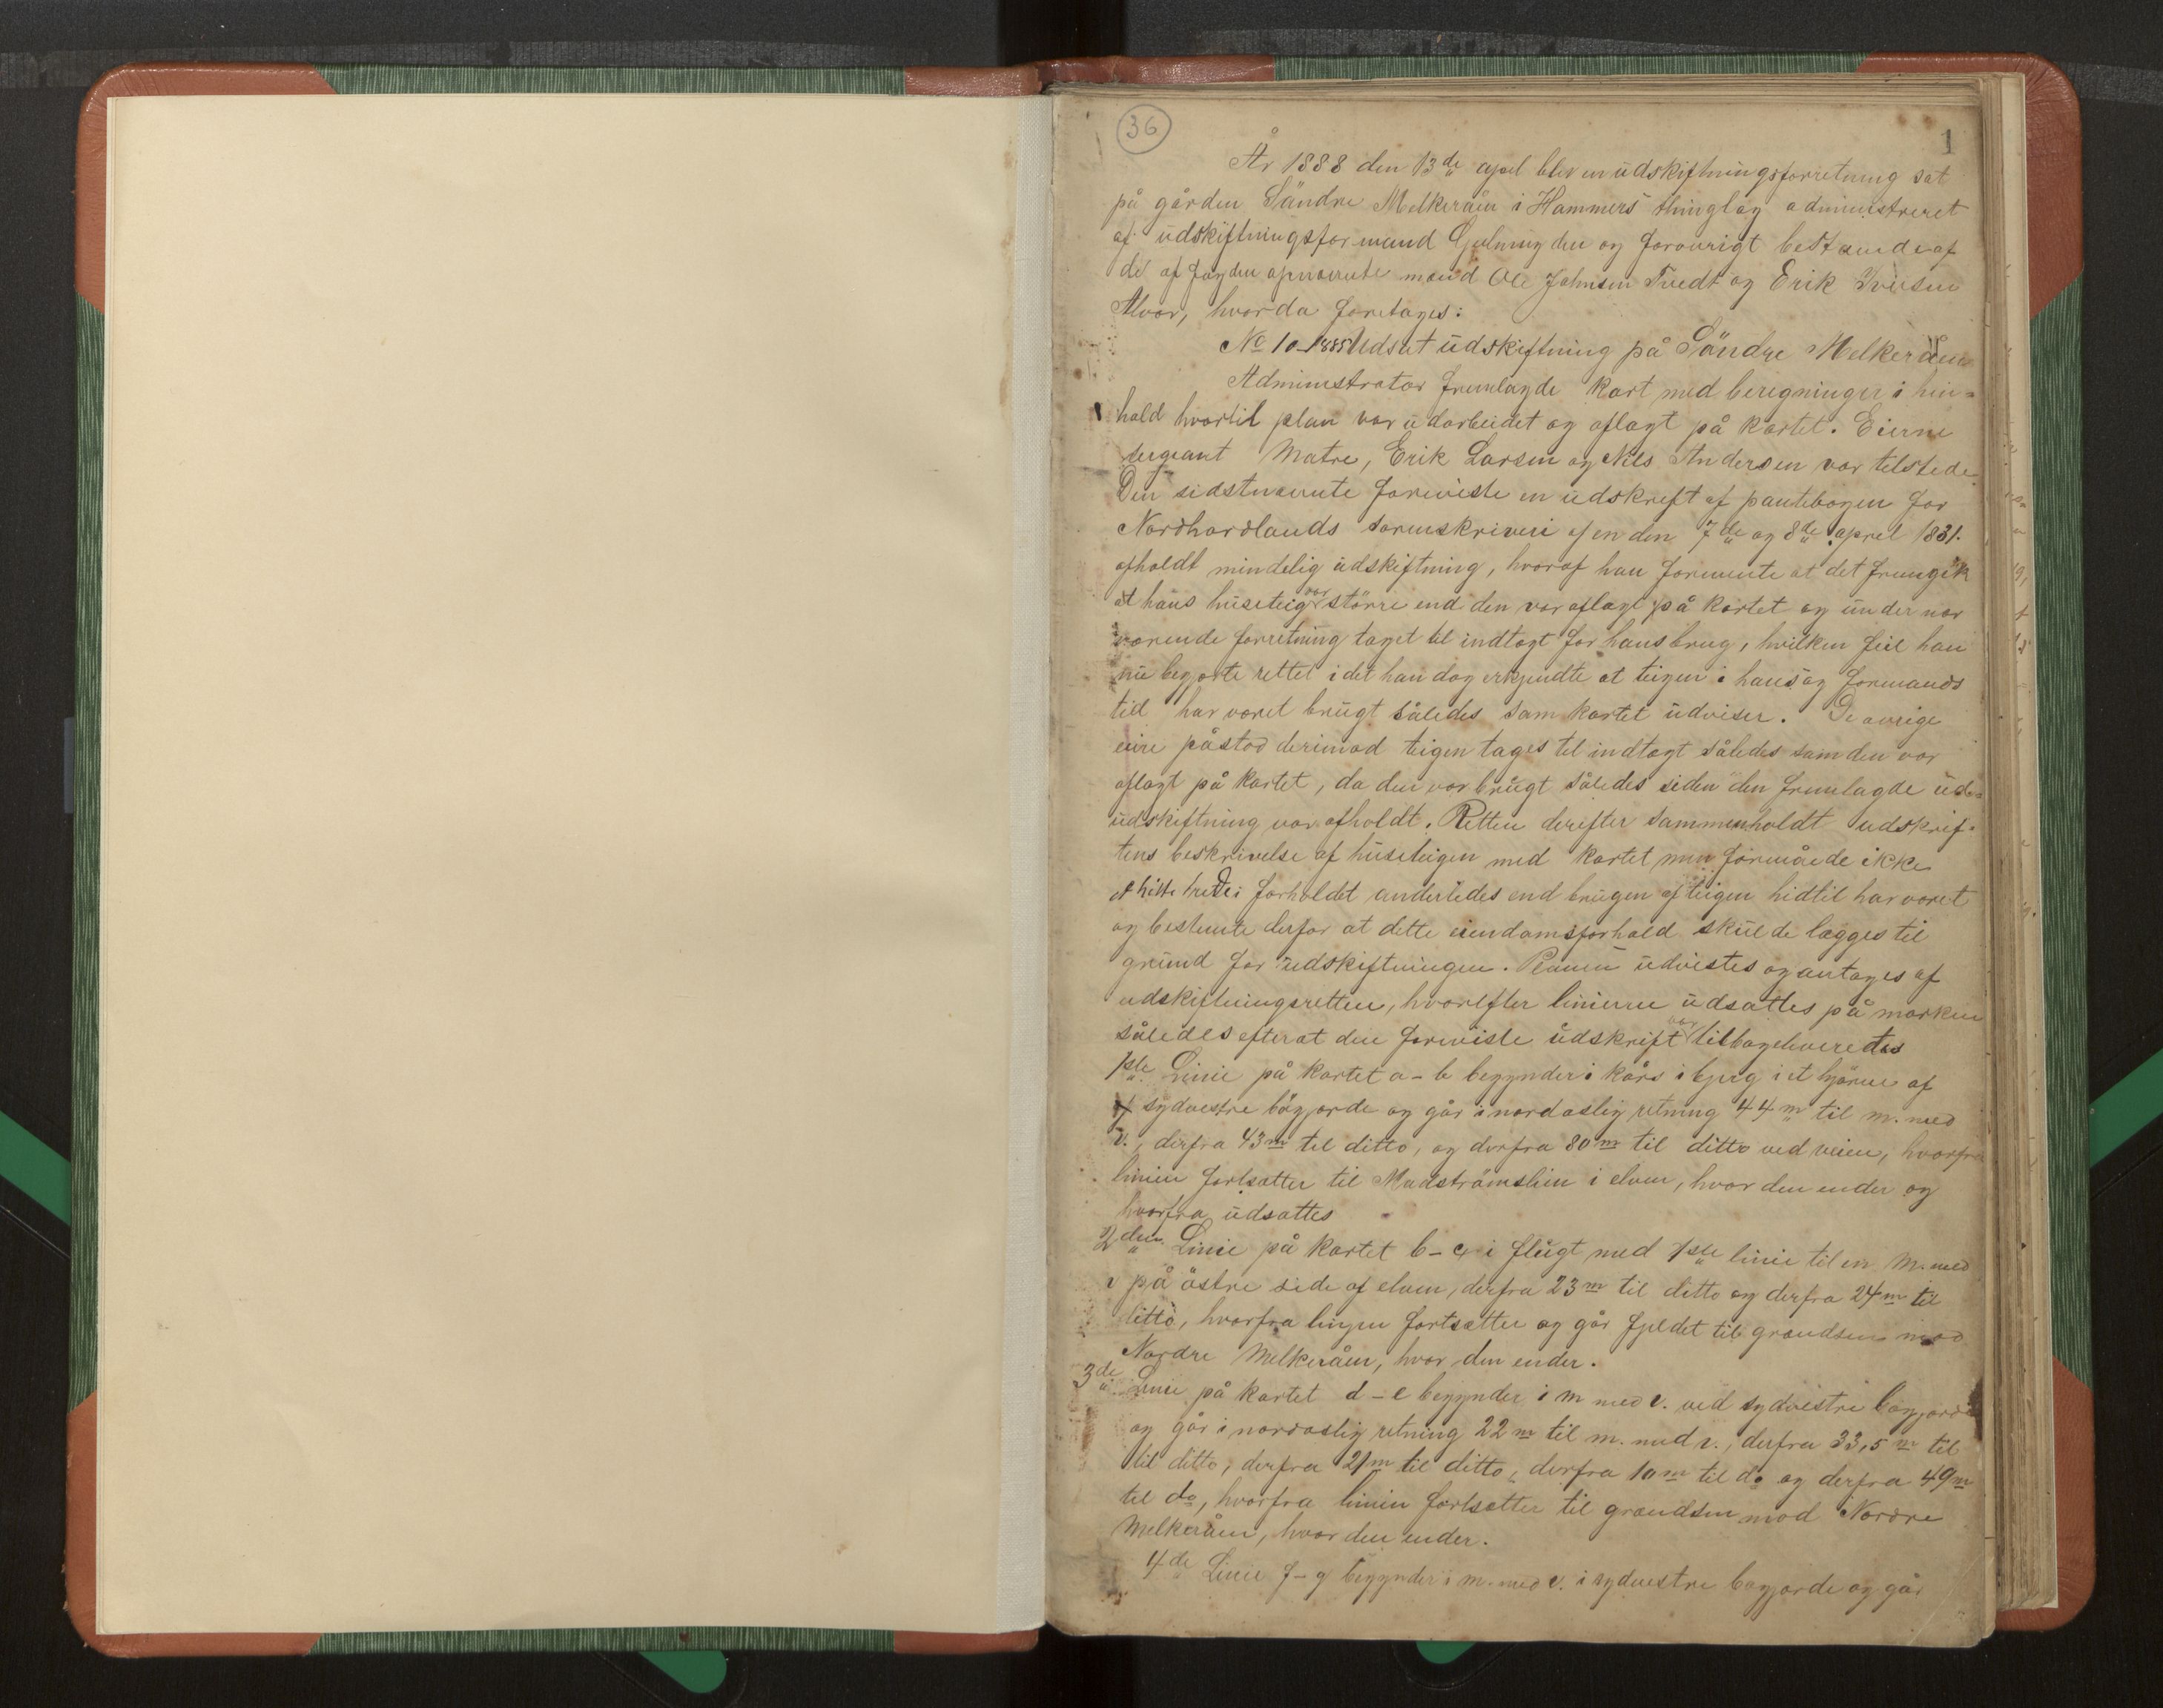 36
1
År 1888 den 13de april blev en udskiftningsforretning sat
på gården Söndre Melkeråen i Hammers thinglag administreret
af udskiftningsformand Gulning der og forövrigt bestående af
de af fogden opnævnte mænd Ole Johnsen Tvedt og Erik Iversen
Alvær, hvorda foretages:
No 10-1885 Udsat udskiftning på Söndre Melkeråen
Administrator fremlagde kart med beregninger i hen-
hold hvortil plan var udarbeidet og aflagt på kartet. Eierne
sergeant Matre, Erik Larsen og Nils Andersen var tilstede.
Den sidstnævnte foreviste en udskrift af pantebogen for
Nordhordlands sorenskriveri af en den 7de og 8de april 1831.
afholdt mindelig udskiftning, hvoraf han formente at det fremgik
at hans huseteig var större end den var aflagt på kartet og under nær
værende forretning taget til indtægt for hans brug, hvilken feil han
nu begjærte rettet idet han dog erkjendte at teigen i hans og formands
tid har været brugt således som kartet udviser. De övrige
eiere påstod derimod teigen tages til indtægt således som den var
aflagt på kartet, da den var brugt således siden den fremlagde ud-
udskiftning var afholdt. Retten derefter sammenholdt udskrif-
tens beskrivelse af huseteigen med kartet men formåede ikke
at hitte rede i forholdet anderledes end brugen af teigen hidtil har været
og bestemte derfor at dette eiendomsforhold skulde lægges til
grund for udskiftningen. Planen udvistes og antages af
udskiftningsretten, hvorefter linierne udsattes på marken
således efterat den foreviste udskrift var tilbageleveredes
1ste Linie på kartet a-b begynder i kårs i berg i et hjörne af
af sydvestre bögjorde og går i nordostlig retning 44m til m. med
v., derfra 43m til ditto, og derfra 80m til ditto ved veien, hvorfra
linien fortsætter til Madströmshein i elven, hvor den ender og
hvorfra udsattes
2den Linie på kartet b-c i flugt med 1ste linie til en m. med
v på östre side af elven, derfra 23m til ditto og derfra 24m til
ditto, hvorfra linjen fortsætter og går fjeldet til grændsen mod
Nordre Melkeråen, hvor den ender.
3de Linie på kartet d-e begynder i m med v. ved sydvestre bögjorde
og går i nordostlig retning 22m til m. med v., derfra 33,5m til
til ditto, derfra 21m til ditto, derfra 10m til do og derfra 49m
til do, hvorfra linien fortsætter til grændsen mod Nordre
Melkeråen, hvor den ender.
4de Linie f-g begynder i m. med v. i sydvestre bögjorde og går